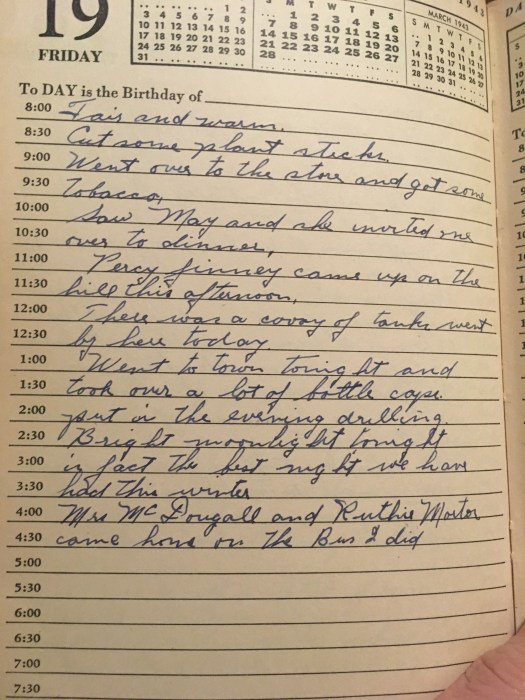 19
FRIDAY
1 2
3 4 5 6 7 8 9
10 11 12 13 14 15 16
17 18 19 20 21 22 23
24 25 26 27 28 29 30
31
M T W T F S
1 2 3 4 5 6
7 8 9 10 11 12 13
14 15 16 17 18 19 20
21 22 23 24 25 26 27
28
MARCH 1943
S M T W T F S
1 2 3 4 5 6
7 8 9 10 11 12 13
14 15 16 17 18 19 20
21 22 23 24 25 26 27
28 29 30 31
To DAY is the Birthday of
8:00 Fair and warm.
8:30 Cut some plant sticks.
9:00 Went over to the store and got some
9:30 Tobacco,
10:00 Saw May and she invited me
10:30 over to dinner,
11:00 Percy Finney came up on the
11:30 hill this afternoon,
12:00 There was a covoy of tanks went
12:30 by here today.
1:00 Went to town tonight and
1:30 took over a lot of bottle caps.
2:00 put in the evening drilling.
2:30 Bright moonlight tonight
3:00 in fact the best night we have
3:30 had this winter
4:00 Mrs McDougall and Ruthie Morton
4:30 came home on the Bus I did
5:00
5:30
6:00
6:30
7:00
7:30